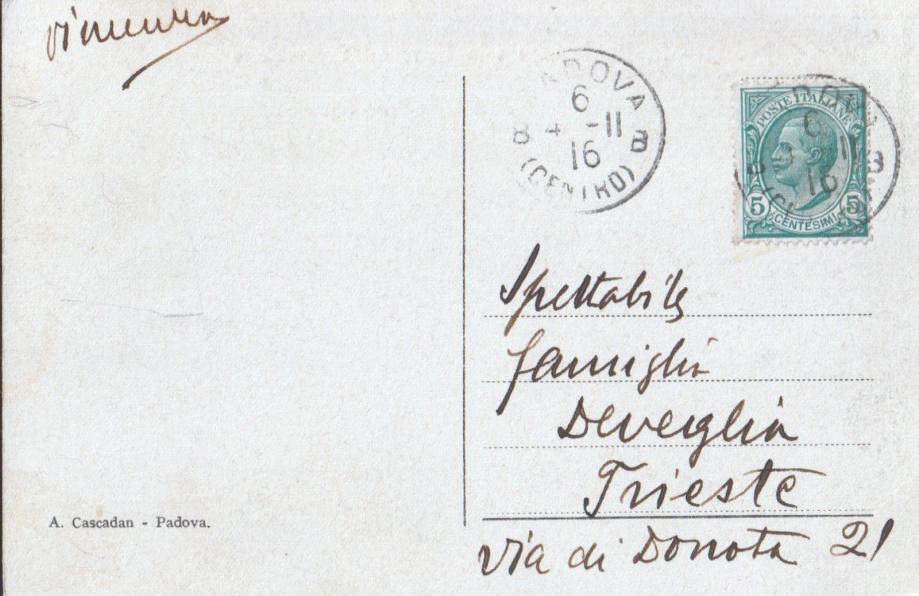 PADOVA
6
B 4 - 11 B
16
(CENTRO)
POSTE ITALIANE
6
11
B
16
5 CENTESIMI 5
Spettabile
famiglia
Deveglia
Trieste
Via di Donota 21
A. Cascadan - Padova.